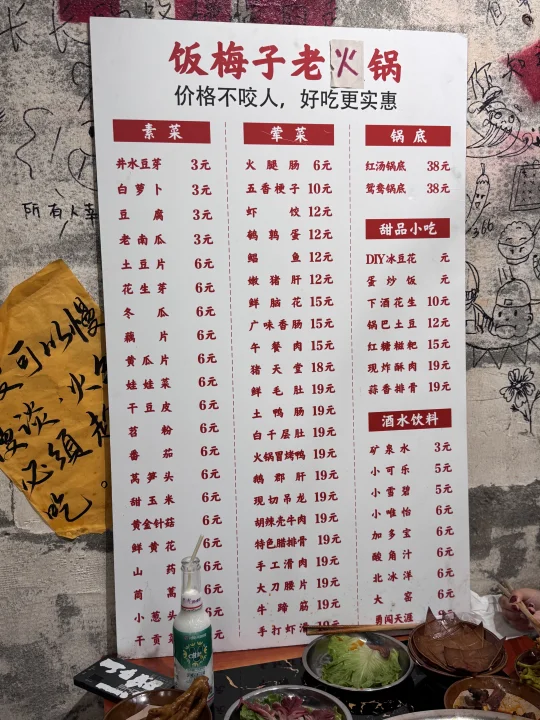 饭梅子老火锅
价格不咬人，好吃更实惠
素菜
井水豆芽 3元
白萝卜 3元
豆腐 3元
老南瓜 3元
土豆片 6元
花生芽 6元
冬瓜 6元
藕片 6元
黄瓜片 6元
娃娃菜 6元
干豆皮 6元
苕粉 6元
番茄 6元
莴笋头 6元
甜玉米 6元
黄金针菇 6元
鲜黄花 6元
山药 6元
茼蒿 6元
小葱头 6元
干贡菜
荤菜
火腿肠 6元
五香梗子 10元
虾饺 12元
鹌鹑蛋 12元
鲳鱼 12元
嫩猪肝 12元
鲜脑花 15元
广味香肠 15元
午餐肉 15元
猪天堂 18元
鲜毛肚 19元
土鸭肠 19元
白千层肚 19元
火锅冒烤鸭 19元
鹅郡肝 19元
现切吊龙 19元
胡辣壳牛肉 19元
特色腊排骨 19元
手工滑肉 19元
大刀腰片 19元
牛蹄筋 19元
手打虾滑 19元
锅底
红汤锅底 38元
鸳鸯锅底 38元
甜品小吃
DIY冰豆花 元
蛋炒饭 元
下酒花生 10元
锅巴土豆 12元
红糖糍粑 15元
现炸酥肉 19元
蒜香排骨 19元
酒水饮料
矿泉水 3元
小可乐 5元
小雪碧 5元
小唯怡 6元
加多宝 6元
酸角汁 6元
北冰洋 6元
大窑 6元
勇闯天涯
所有人幸
366
可以慢
谈，火
必须
吃。